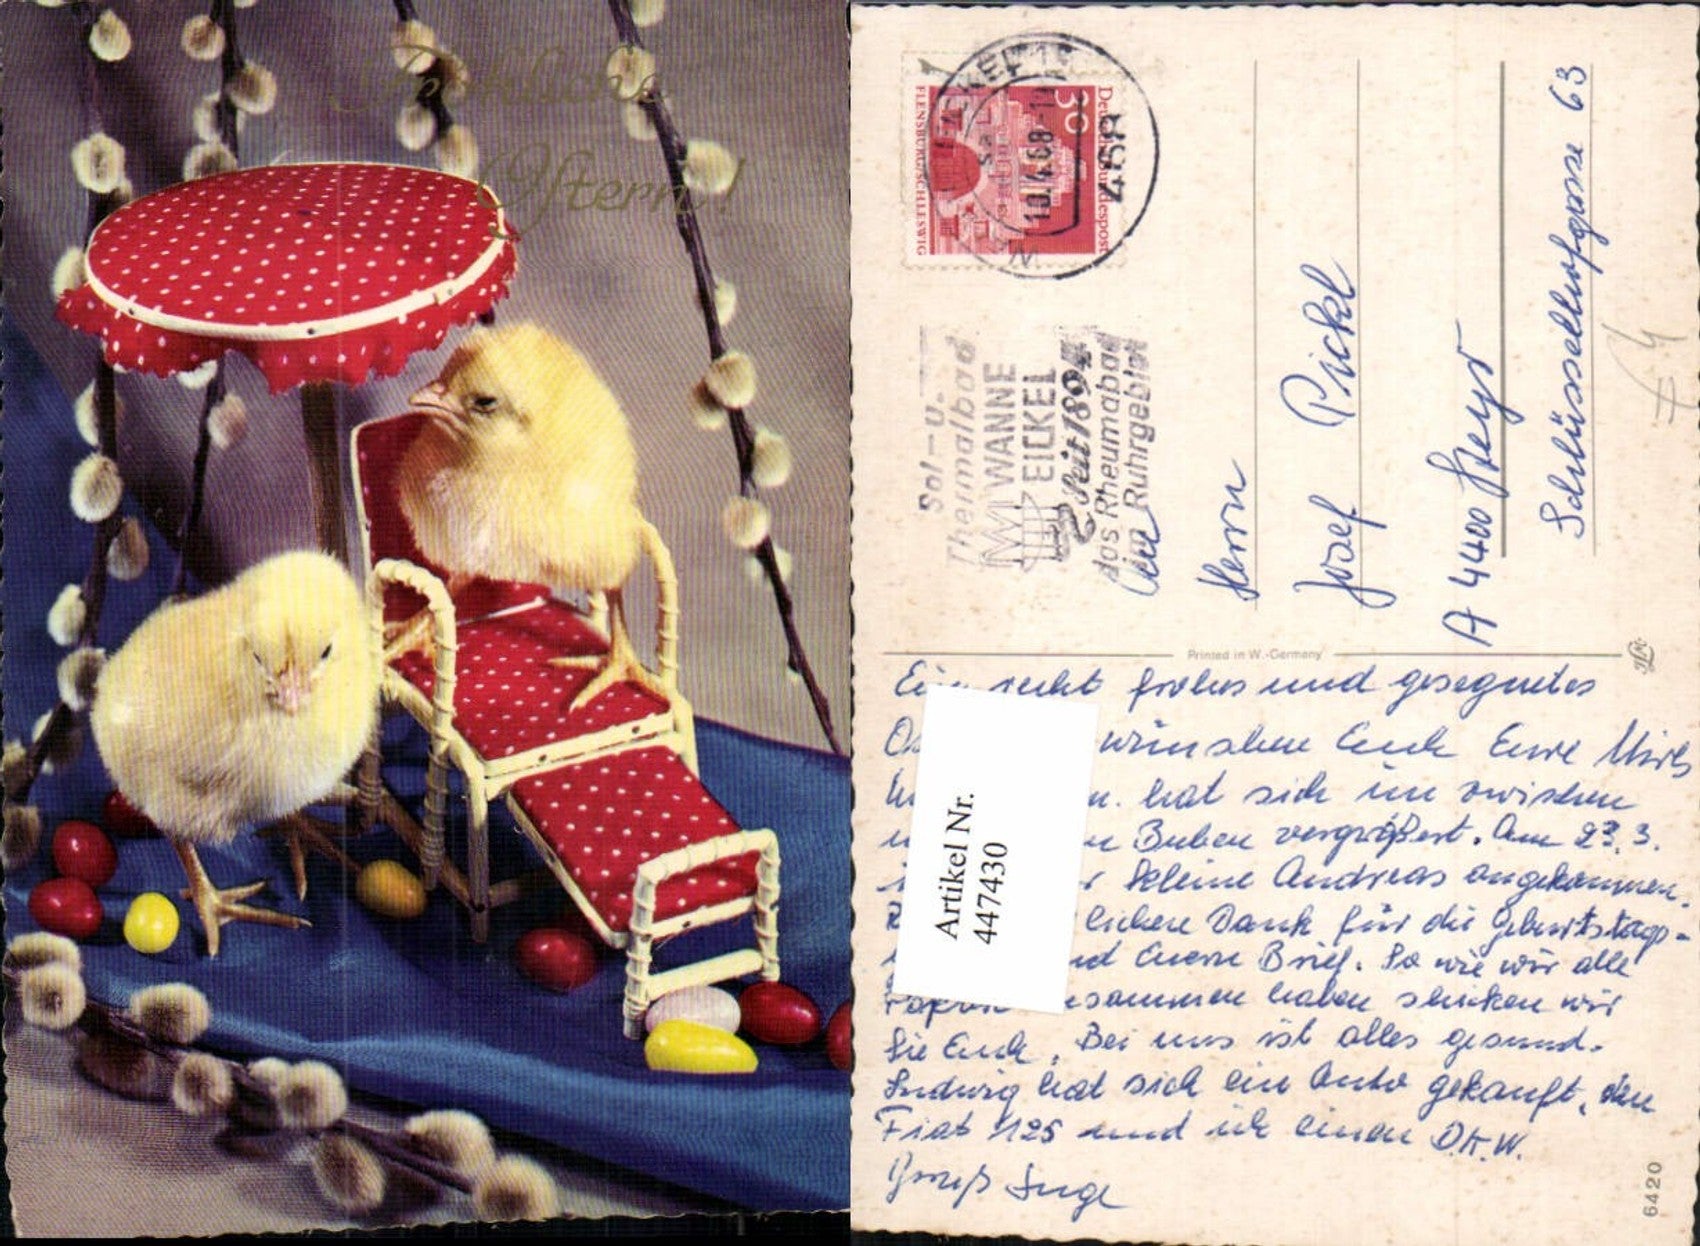 Fröhliche
Ostern!
Deutsche Bundespost
30
FLENSBURG/SCHLESWIG
WANNE-EICKEL 1
10.4.68
468
Sol-u.
Thermalbad
WANNE
EICKEL
Seit 1894
das Rheumabad
im Ruhrgebiet
Herrn
Josef Pickl
A 4400 Steyr
Schlüsselhofgasse 63
Printed in W.-Germany
Ein recht frohes und gesegnetes
wünschen Euch Eure
hat sich in zwischen
Buben vergrößert. Am 23.3.
kleine Andreas angekommen.
lieben Dank für die Geburtstags-
Euern Brief. So wie wir alle
zusammen haben schicken wir
Sie Euch. Bei uns ist alles gesund.
Ludwig hat sich ein Auto gekauft, den
Fiat 1125 und ich einen D.K.W.
Gruß Inge
Artikel Nr.
447430
6420